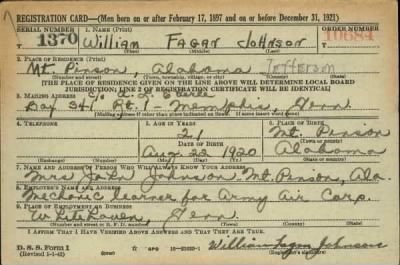 REGISTRATION CARD—(Men born on or after February 17, 1897 and on or before December 31, 1921)
SERIAL NUMBER 1. NAME (Print) ORDER NUMBER
1370 William Fagan Johnson 10684
(First) (Middle) (Last)
2. PLACE OF RESIDENCE (Print)
Mt. Pinson, Alabama Jefferson
(Number and street) (Town, township, village, or city) (County) (State)
[THE PLACE OF RESIDENCE GIVEN ON THE LINE ABOVE WILL DETERMINE LOCAL BOARD
JURISDICTION; LINE 2 OF REGISTRATION CERTIFICATE WILL BE IDENTICAL]
3. MAILING ADDRESS
Box 341 Rt. 1 - Memphis, Tenn
[Mailing address if other than place indicated on line 2. If same insert word same]
4. TELEPHONE 5. AGE IN YEARS 6. PLACE OF BIRTH
21 Mt. Pinson
DATE OF BIRTH
Aug 22 1920 Alabama
(Exchange) (Number) (Mo.) (Day) (Yr.) (State or country)
7. NAME AND ADDRESS OF PERSON WHO WILL ALWAYS KNOW YOUR ADDRESS
Mrs John Johnson Mt Pinson, Ala.
8. EMPLOYER'S NAME AND ADDRESS
Mechanic learner for Army Air Corp.
9. PLACE OF EMPLOYMENT OR BUSINESS
Tenn.
(Number and street or R. F. D. number) (Town) (County) (State)
I AFFIRM THAT I HAVE VERIFIED ABOVE ANSWERS AND THAT THEY ARE TRUE.
D. S. S. Form 1
(Revised 1-1-42) GPO
William Fagan Johnson
(Registrant's signature)